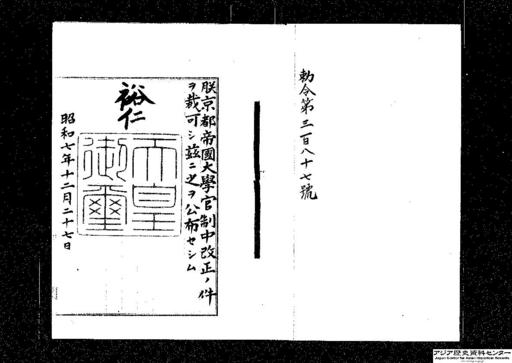 勅令第三百八十七號
朕京都帝國大學官制中改正ノ件
ヲ裁可シ茲ニ之ヲ公布セシム
裕仁
天皇
御璽
昭和七年十二月二十七日
アジア歴史資料センター
Japan Center for Asian Historical Records